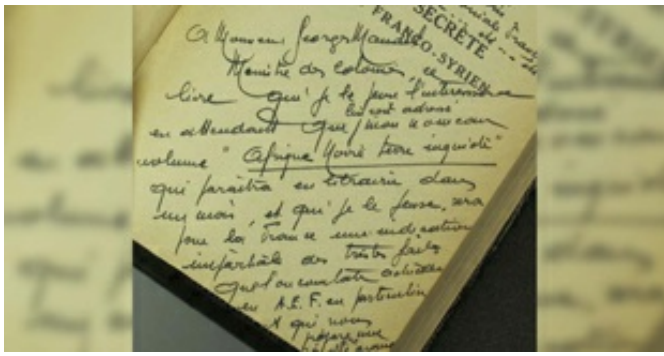 SECRÈTE
FRANCO-SYRIEN
A Monsieur Georges Mandel
Ministre des Colonies, ce
livre qui je le pense l'interessera
lui soit adressé
en attendant que mon nouveau
volume "Afrique Noire terre inquiète"
qui paraîtra en librairie dans
un mois, et qui je le pense, sera
pour la France une indication
impartiale des tristes faits
que l'on constate
en A.E.F. en particulier
& qui nous
prépare une